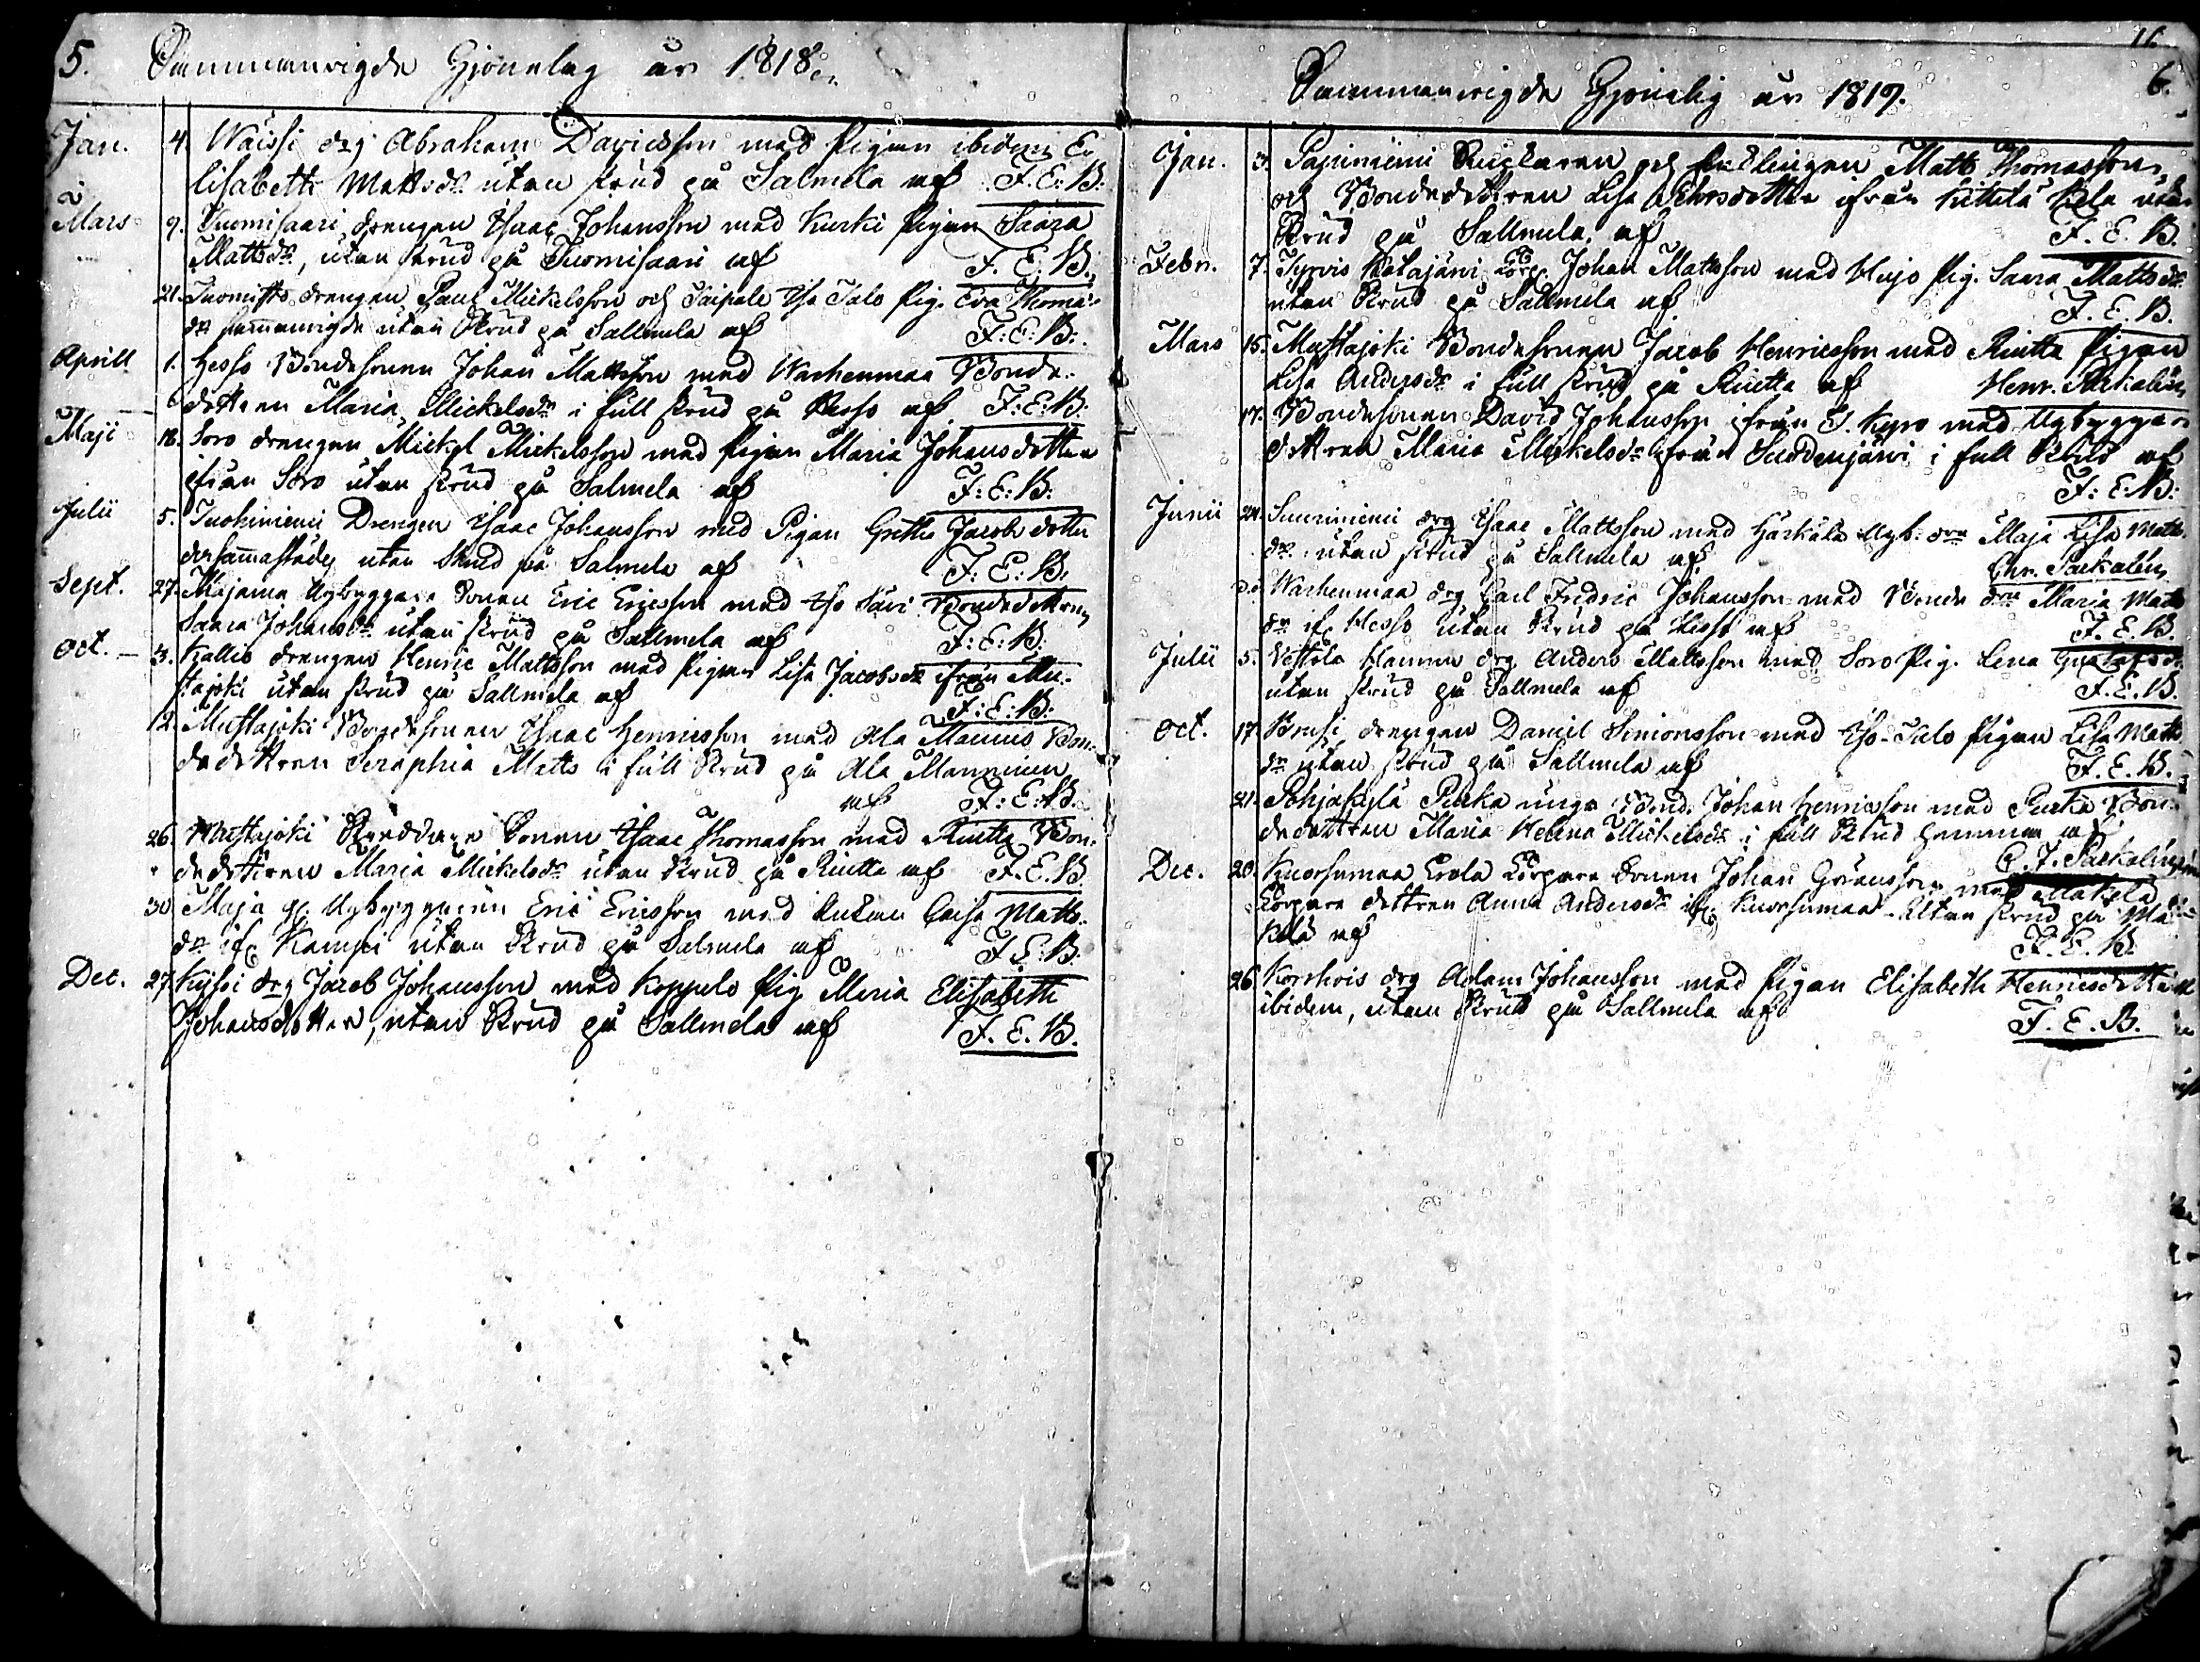 5. Sammanvigde Hjonelag år 1818.
Jan. 4. Waissi drg Abraham Davidsson med Pigan ibidem E-
lisabeth Mattsdr utan skrud på Salmela af F. E. B.
Mars 9. Tuomisaari drengen Isaac Johansson med Kurki Pigan Saara
Mattsdr, utan skrud på Tuomisaari af F. E. B.
21. drengen Paul Mickelsson och Taipale Iso Talo Pig. Eva Thoma-
dr sammanvigde utan Skrud på Sallmela af F: E: B:
Aprill 1. Hesso Bondesonen Johan Mattsson med Warhenmaa Bonde-
dottren Maria Mickelsdr i full skrud på Hesso af F: E: B:
Maji 18. Soro drengen Mickel Mickelsson med Pigan Maria Johansdotter
ifrån Soro utan skrud på Salmela af F: E: B:
Julii 5. Tuohiniemi Drengen Isaac Johansson med Pigan Gretha Jacobsdotter
dersammastädes utan Skrud på Salmela af F: E: B.
Sept. 27. Majama Nybyggare Sonen Eric Ericsson med Iso Savi Bondedottren
Saara Johansdr utan skrud på Sallmela af F: E: B.
Oct. 3. Kallio drengen Henric Mattsson med Pigan Lisa Jacobsdr ifrån Mu-
stajoki utan skrud på Sallmela af F: E: B:
12. Mustajoki Bondesonen Isaac Henricsson med Ala Mannis Bon-
dedottren Seraphia Matts i full Skrud på Ala Manninen
af F: E: B.
26. Mustajoki Skreddare Sonen Isaac Thomasson med Riutta Bon-
dedottren Maria Mickelsdr utan skrud på Riutta af F. E. B.
30 Maja Nybyggaren Eric Ericsson med Enkan Caisa Matts-
dr if. Kamsi utan Skrud på Salmela af F. E. B.
Dec. 27. Kyssi drg Jacob Johansson med Koppelo Pig Maria Elisabeth
Johansdotter, utan Skrud på Sallmela af F. E. B.
11.
Sammanvigde Hjonelag år 1819. 6.
Jan. 3. Papiniemi och Enklingen Matts Thomasson
och Bondedottren Lisa ifrån Kittilä utan
Skrud på Sallmela af F. E. B.
Febr. 7. Torp. Johan Mattsson med Hujo Pig. Saara Mattsdr
utan Skrud på Sallmela af F. E. B.
Mars 15. Mustajoki Bondesonen Jacob Henricsson med Riutta Pigan
Lisa Andersdr i full skrud på Riutta af Henr. Paekalén
17. Bondesonen David Johansson ifrån S. Kyro med Nybyggare
dottren Maria Mickelsdr ifrån i full Skrud af
F: E: B:
Junii 24. Suuriniemi drg Isaac Mattsson med Härkälä Nyb. drn Maja Lisa Matts-
dr utan skrud på Sallmela af Chr. Paekalén
do. Warhenmaa drg Carl Fredric Johansson med Bonde drn Maria Matts
dr if. Hesso utan Skrud på Hesso af F. E. B.
Julii 5. Vessola Hannu drg Anders Mattsson med Soro Pig. Lena Gustafsdr
utan skrud på Sallmela af F. E. B.
Oct. 17. drengen Daniel Simonsson med Iso-Talo Pigan Lisa Matts
dr utan skrud på Sallmela af F. E. B.
21. Pohjakylä Ruka unge Bond. Johan Henricsson med Ruka Bon-
dedottren Maria Helena Mickelsdr i full Skrud hemma af
C. J. Paekalén
Dec. 20. Kuorsumaa Erola Torpare Sonen Johan Göransson med Mäkelä
Torpare dottren Anna Andersdr if. Kuorsumaa utan skrud på Mä-
kelä af F. E. B.
26. Korrhois drg Adam Johansson med Pigan Elisabeth Henricsdotter
ibidem, utan Skrud på Sallmela af
F. E. B.